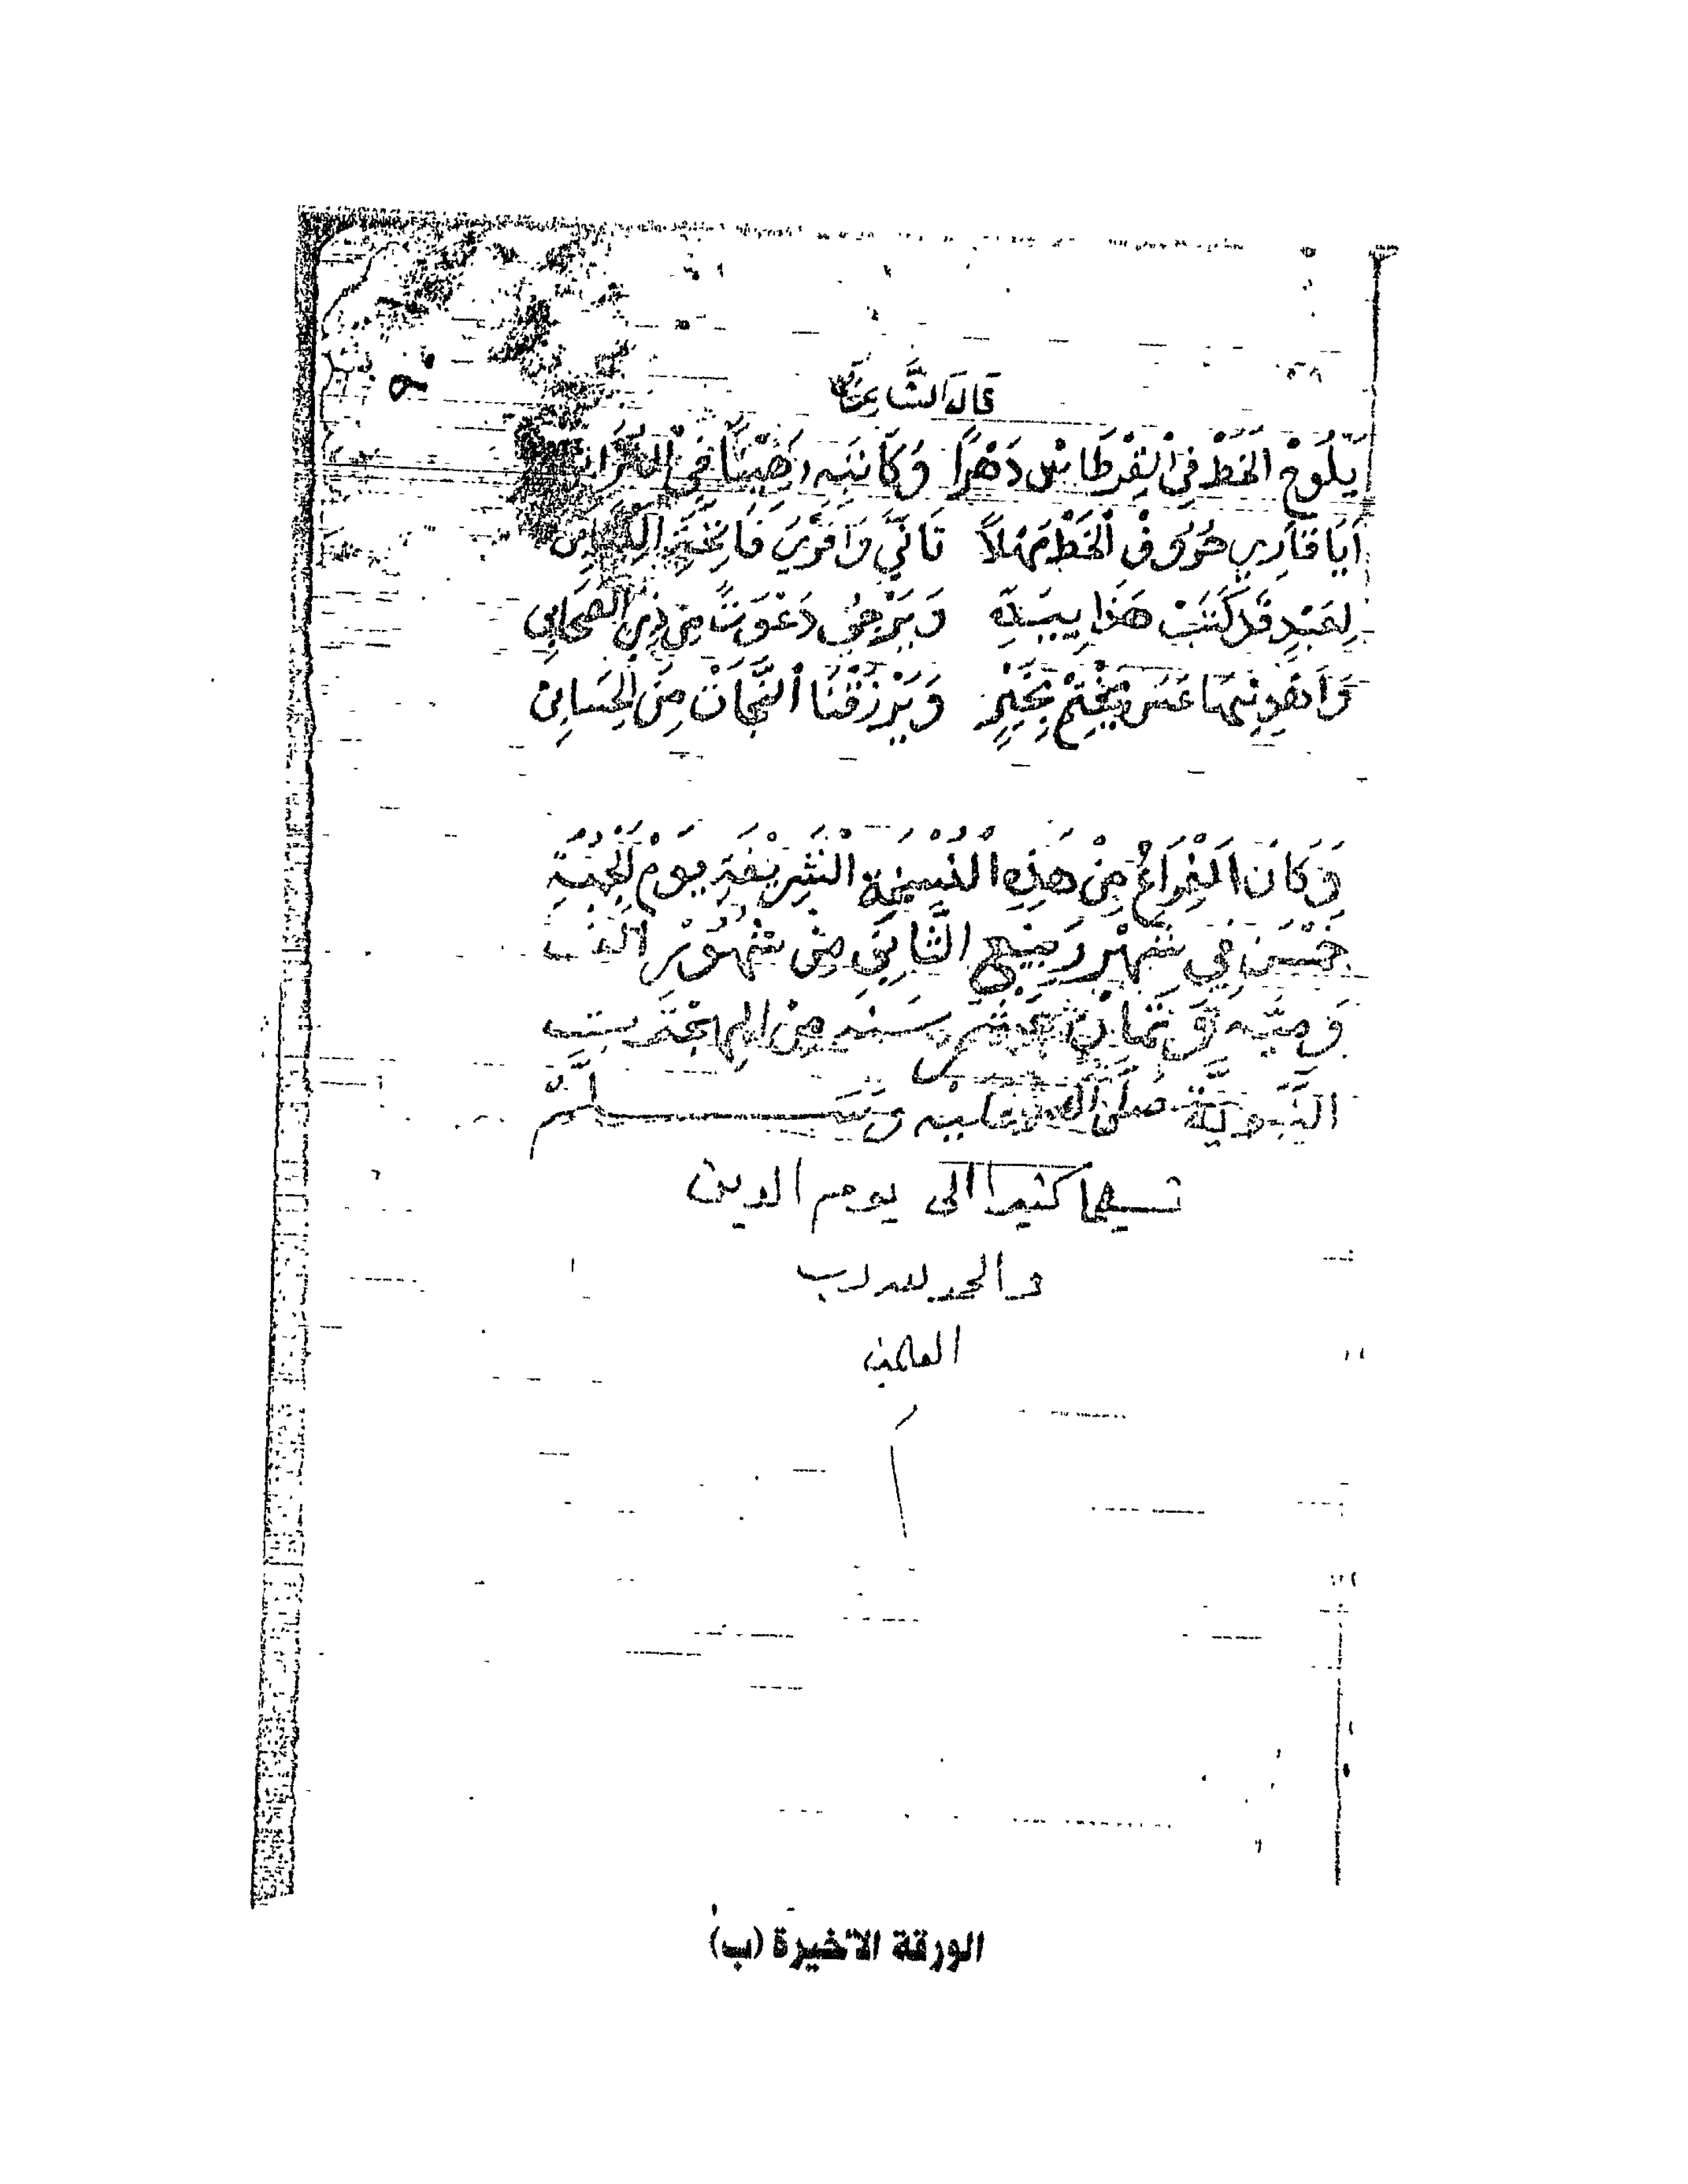 قَالَ الشَّاعِرُ
يَلُوحُ الْخَطُّ فِي الْقِرْطَاسِ دَهْرًا وَكَاتِبُهُ رَمِيمًا فِي التُّرَابِ
اَيَا قَارِي حُرُوفْ الْخَطِّ مَهْلاً تَانَّي وَاقْرَي فَاتِحَتَ الْكِتَابِ
لِعَبْدٍ قَدْ كَتَبْ هَذَا بِيَدِهِ وَيَرْجُى دَعْوَتً مِنْ ذِي الصَّحَابِي
عَسَى يَخْتِمْ بِخَيْرٍ وَيَرْزُقْنَا النَّجَاتْ مِنَ الْحِسَابِ
وَكَانَ الْفَرَاغُ مِنْ هَذِهِ النُّسْخَةِ الْشَرِيْفَةِ يَوْمَ الْجُمْعَةِ
فِي شَهْرِ رَبِيْعِ الثَّانِي مِنْ شُهُوْرِ اَلْف
وَمِيَّه وَثَمَانْ عَشَرْ سَنَه مِنَ الْهِجْرَتِ
النَّبَوِيَّةْ صَلَّى اللهُ عَلَيْهِ وَسَلَّمْ
تسليما كثيرا الى يوم الدين
والحمد لله رب
العلمين
الورقة الأخيرة (ب)